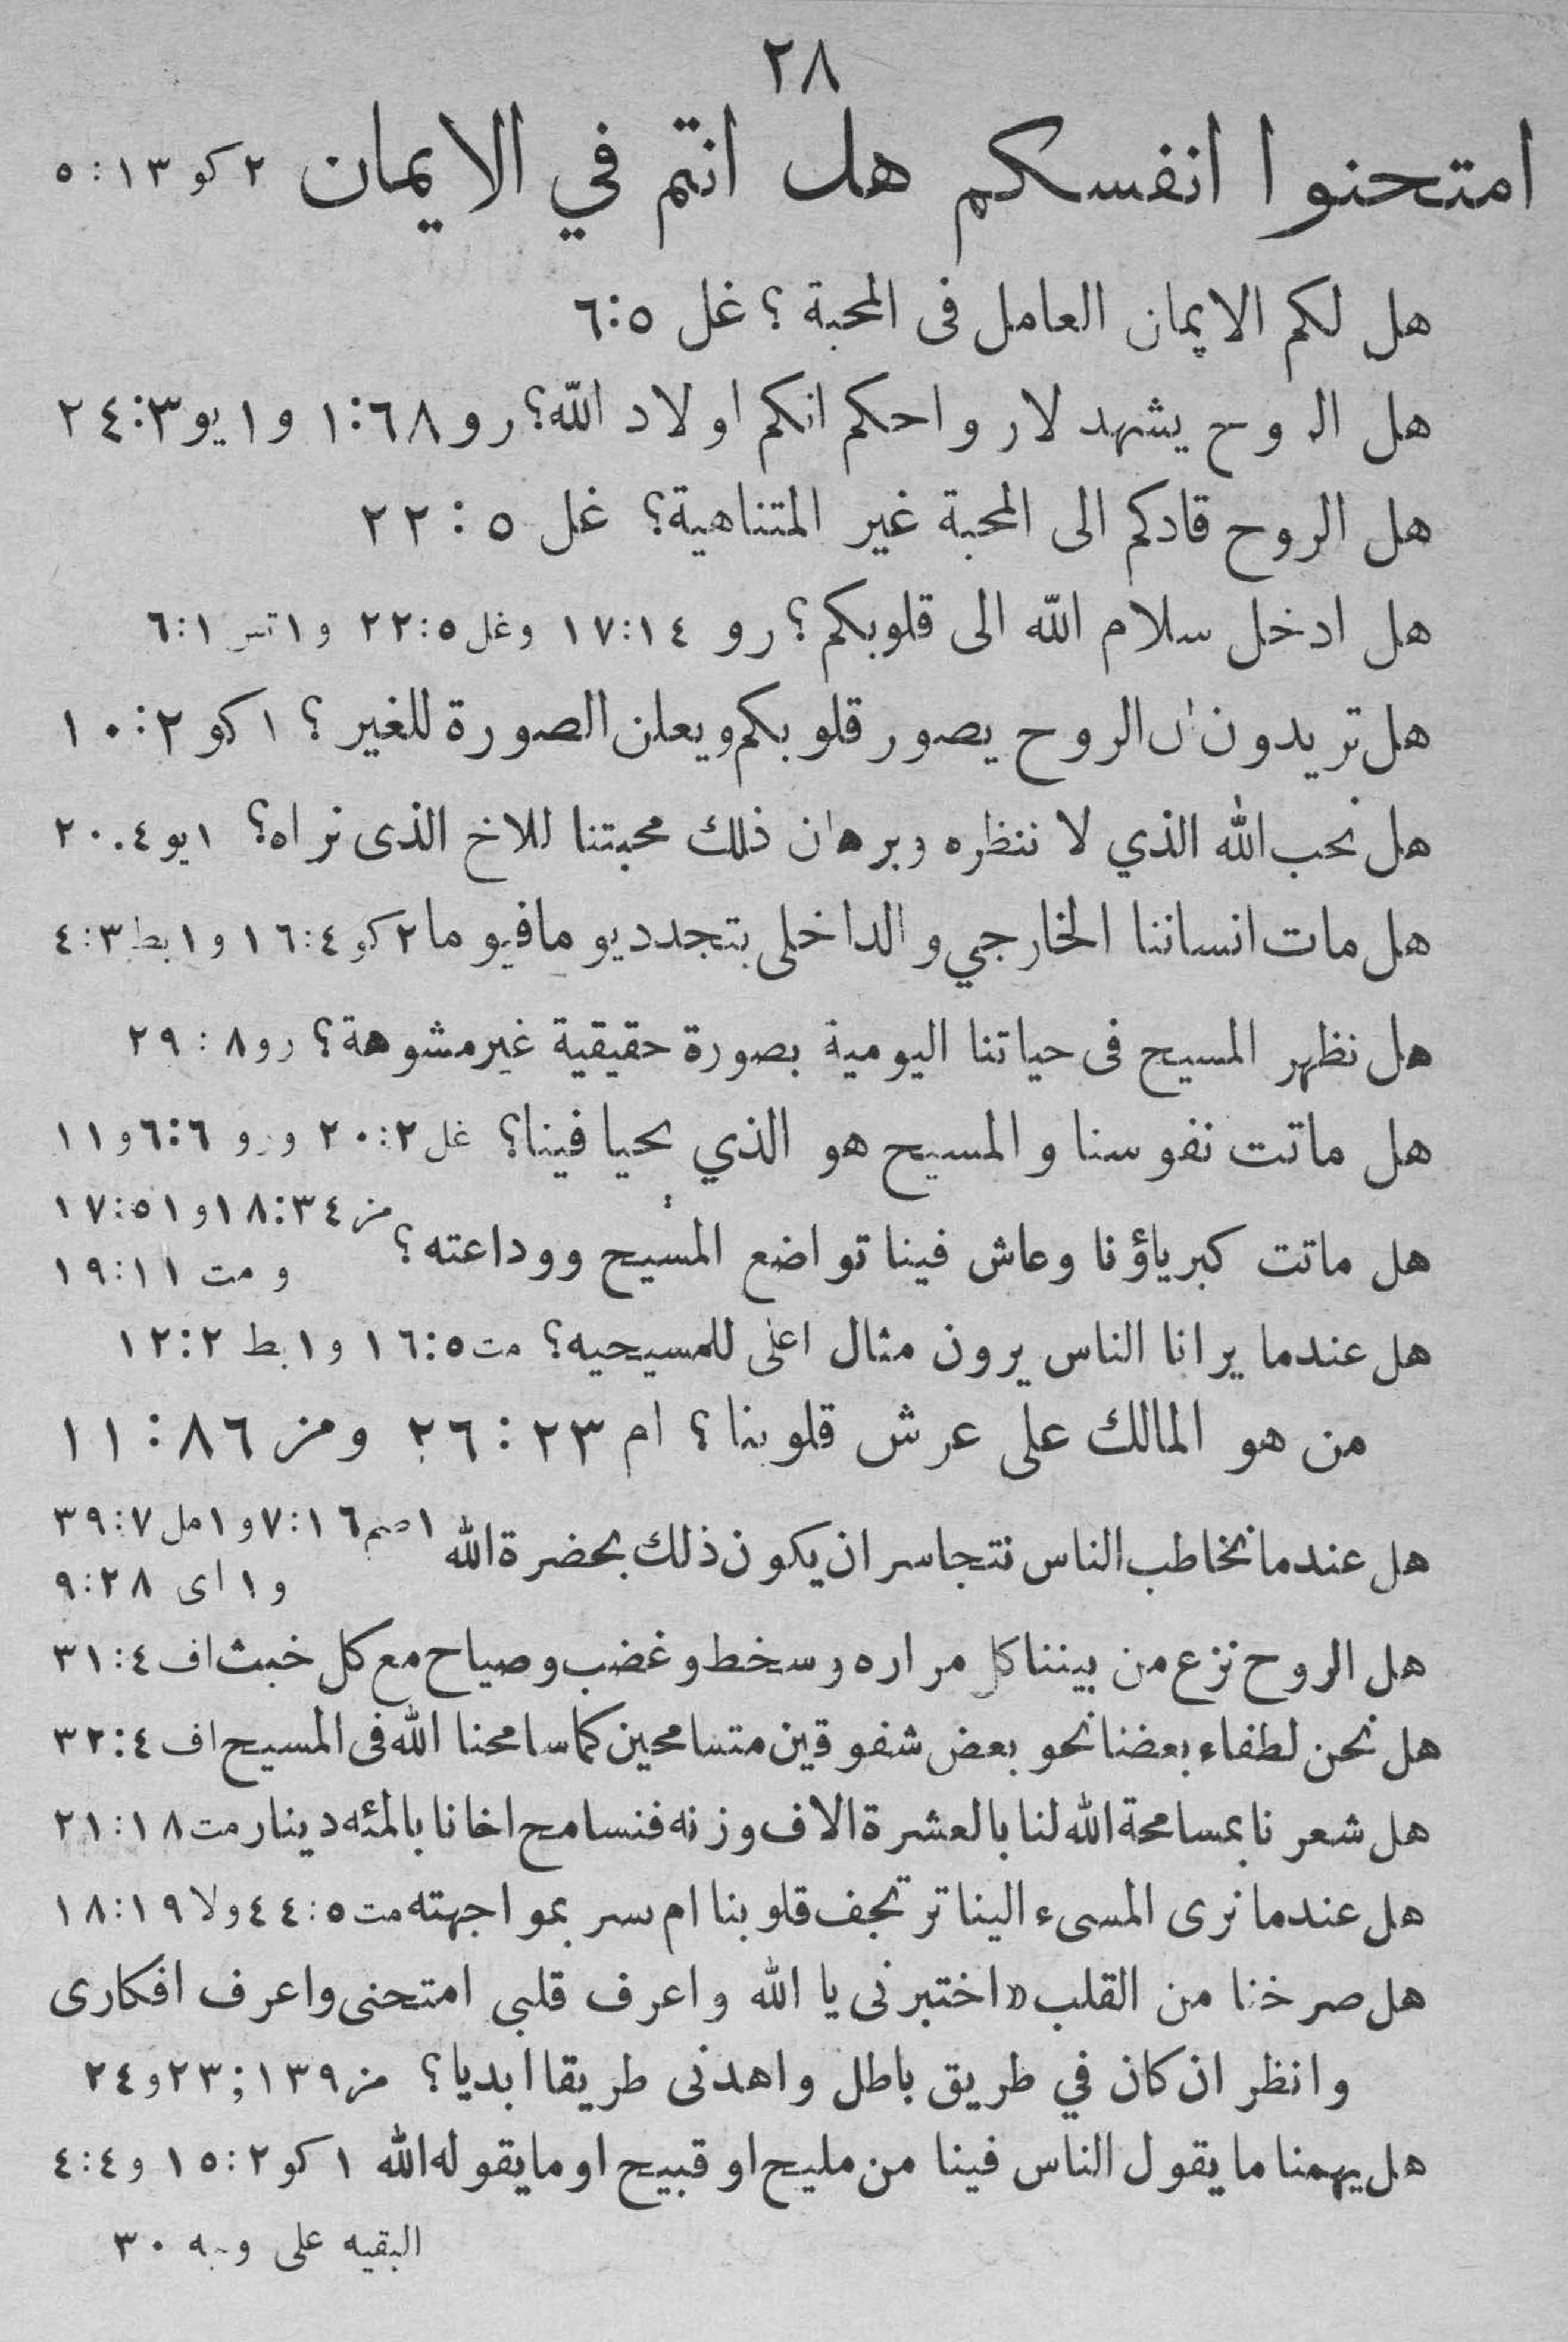 ٢٨
امتحنوا انفسكم هل انتم في الايمان ٢ كو ١٣ : ٥
هل لكم الايمان العامل فى المحبة ؟ غل ٥:٦
هل الروح يشهد لارواحكم انكم اولاد الله؟ رو ٦٨:١ و١ يو ٣:٢٤
هل الروح قادكم الى المحبة غير المتناهية؟ غل ٥ : ٢٢
هل ادخل سلام الله الى قلوبكم؟ رو ١٤:١٧ وغل ٥:٢٢ و١ تس ١:٦
هل تريدون ان الروح يصور قلوبكم ويعلن الصورة للغير ؟ ١ كو ٢:١٠
هل نحب الله الذي لا ننظره وبرهان ذلك محبتنا للاخ الذى نراه؟ ١ يو ٤.٢٠
هل مات انساننا الخارجي والداخلى بتجدد يوما فيوما ٢ كو ٤:١٦ و١ بط ٣:٤
هل نظهر المسيح فى حياتنا اليومية بصورة حقيقية غير مشوهة؟ رو ٨ : ٢٩
هل ماتت نفوسنا والمسيح هو الذي يحيا فينا؟ غل ٢:٢٠ ورو ٦:٦ و١١
هل ماتت كبرياؤنا وعاش فينا تواضع المسيح ووداعته ؟ مز ٣٤:١٨ و٥١:١٧
و مت ١١:١٩
هل عندما يرانا الناس يرون مثال اعلى للمسيحيه؟ مت ٥:١٦ و١ بط ٢:١٢
من هو المالك على عرش قلوبنا ؟ ام ٢٣ : ٢٦ ومز ٨٦ : ١١
هل عندما نخاطب الناس نتجاسر ان يكون ذلك بحضرة الله ١ صم ١٦:٧ و١ مل ٧:٣٩
و ١ اى ٢٨:٩
هل الروح نزع من بيننا كل مراره وسخط وغضب وصياح مع كل خبث اف ٤:٣١
هل نحن لطفاء بعضنا نحو بعض شفوقين متسامحين كما سامحنا الله فى المسيح اف ٤:٣٢
هل شعرنا بمسامحة الله لنا بالعشرة الاف وزنه فنسامح اخانا بالمئه دينار مت ١٨:٢١
هل عندما نرى المسىء الينا ترتجف قلوبنا ام نسر بمواجهته مت ٥:٤٤ ولا ١٩:١٨
هل صرخنا من القلب «اختبرنى يا الله واعرف قلبي امتحنى واعرف افكارى
وانظر ان كان في طريق باطل واهدنى طريقا ابديا ؟ مز ١٣٩;٢٣ و٢٤
هل يهمنا ما يقول الناس فينا من مليح او قبيح او ما يقوله الله ١ كو ٢:١٥ و٤:٤
البقيه على وجه ٣٠